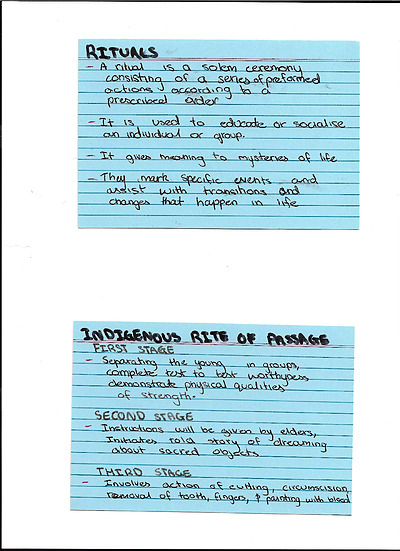 RITUALS
- A ritual is a solem ceremony
consisting of a series of preformed
actions according to a
prescribed order
- It is used to educate or socialise
an individual or group.
- It gives meaning to mysteries of life
- They mark specific events and
assist with transitions and
changes that happen in life
INDIGENOUS RITE OF PASSAGE
FIRST STAGE
- Separating the young in groups,
complete test to test worthyness
demonstrate physical qualities
of strength.
SECOND STAGE
- Instructions will be given by elders,
Initiates told story of dreaming
about sacred objects
THIRD STAGE
- Involves action of cutting, circumscision
removal of tooth, fingers, & painting with blood